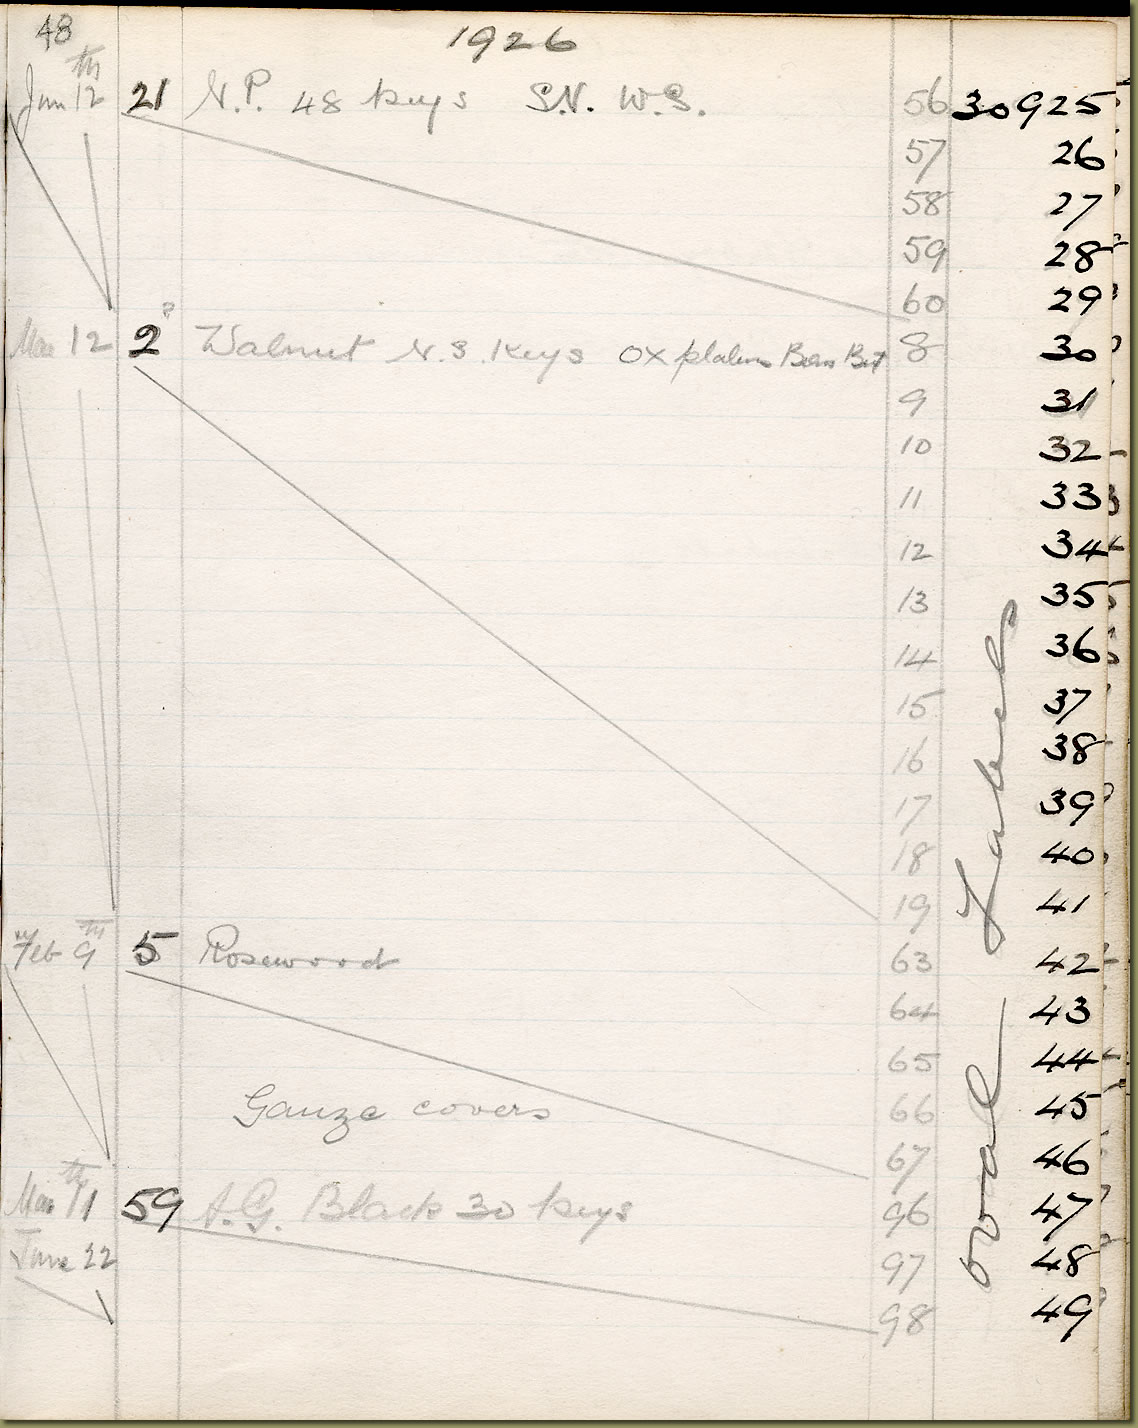 48
1926
Jan 12th 21 N.P. 48 keys S.N. W.S. 56 30925
57 26
58 27
59 28
60 29
Mar 12 2 Walnut N.S. Keys OX Bars But 8 30
9 31
10 32
11 33
12 34
13 35
14 36
15 37
16 38
17 39
18 40
19 41
Feb 9th 5 Rosewood 63 42
64 43
65 44
Gauze covers 66 45
67 46
Mar 11th 59 A.G. Black 30 keys 96 47
June 22 97 48
98 49
oval Labels